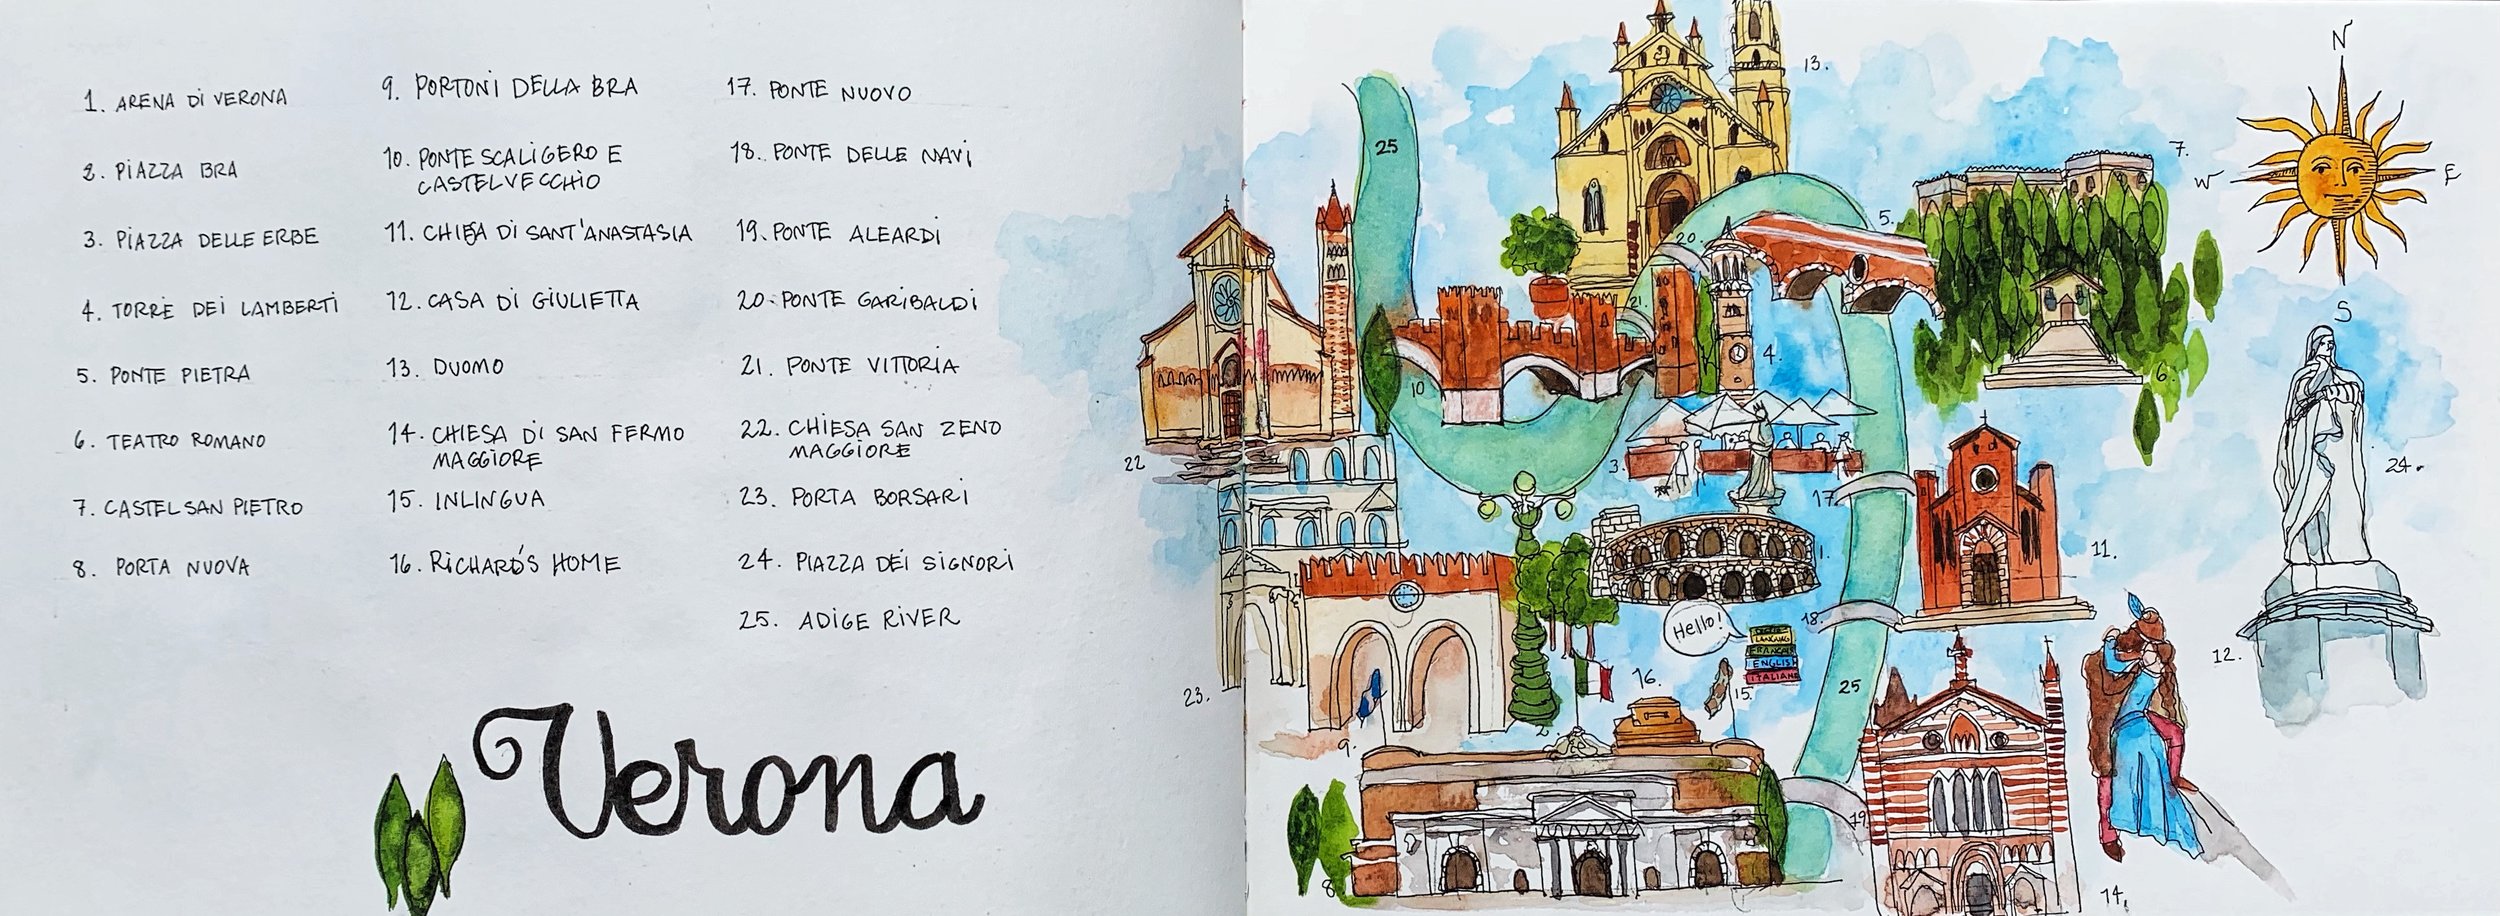 1. ARENA DI VERONA
2. PIAZZA BRA
3. PIAZZA DELLE ERBE
4. TORRE DEI LAMBERTI
5. PONTE PIETRA
6 TEATRO ROMANO
7. CASTEL SAN PIETRO
8. PORTA NUOVA
9. PORTONI DELLA BRA
10. PONTE SCALIGERO E
CASTELVECCHIO
11. CHIESA DI SANT'ANASTASIA
12. CASA DI GIULIETTA
13. DUOMO
14. CHIESA DI SAN FERMO
MAGGIORE
15. INLINGUA
16. RICHARD'S HOME
17. PONTE NUOVO
18. PONTE DELLE NAVI
19. PONTE ALEARDI
20. PONTE GARIBALDI
21. PONTE VITTORIA
22. CHIESA SAN ZENO
MAGGIORE
23. PORTA BORSARI
24. PIAZZA DEI SIGNORI
25. ADIGE RIVER
Verona
N
W
E
S
13.
25
7.
5.
20.
21.
4.
10
6.
22
3.
24.
17.
1.
11.
18.
Hello!
FRANÇAIS
ENGLISH
ITALIANO
16.
15.
25
12.
23.
2.
9.
19.
8
14.